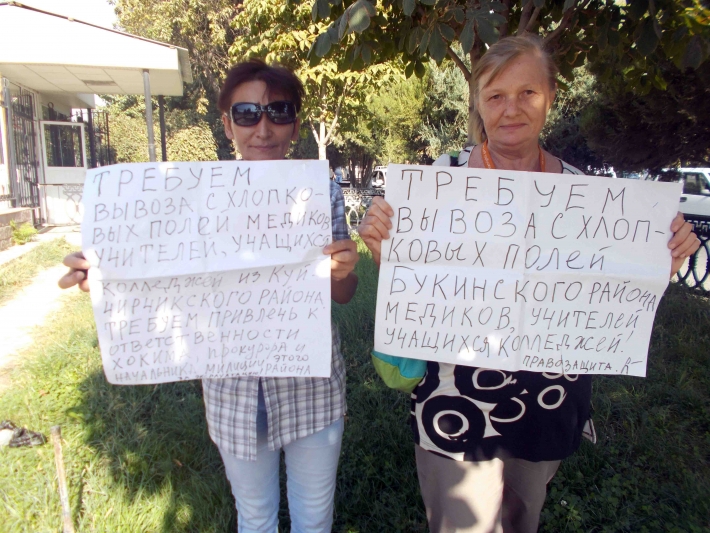 ТРЕБУЕМ
ВЫВОЗА С ХЛОПКО-
ВЫХ ПОЛЕЙ МЕДИКОВ
УЧИТЕЛЕЙ, УЧАЩИХСЯ
КОЛЛЕДЖЕЙ ИЗ КУЙ
ЧИРЧИКСКОГО РАЙОНА
ТРЕБУЕМ ПРИВЛЕЧЬ К
ОТВЕТСТВЕННОСТИ
ХОКИМА, ПРОКУРОРА И
НАЧАЛЬНИКА МИЛИЦИИ ЭТОГО
РАЙОНА
ТРЕБУЕМ
ВЫВОЗА С ХЛОП-
КОВЫХ ПОЛЕЙ
БУКИНСКОГО РАЙОНА
МЕДИКОВ, УЧИТЕЛЕЙ
УЧАЩИХСЯ КОЛЛЕДЖЕЙ!
ПРАВОЗАЩИТА.